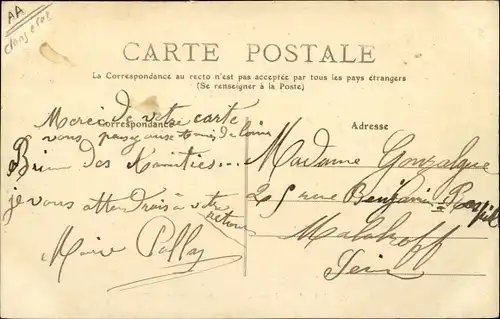 AA
CARTE POSTALE
La Correspondance au recto n'est pas acceptée par tous les pays étrangers
(Se renseigner à la Poste)
Correspondance
Merci de votre carte
vous pensez
Bien des Amitiés...
je vous attendrais à votre
retour
Marie Pallay
Adresse
Madame Gonzalque
25 rue Benjamin Raspail
Malakoff
Seine